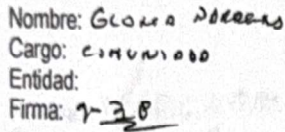 Nombre: Gloria
Cargo: Comunidad
Entidad:
Firma: